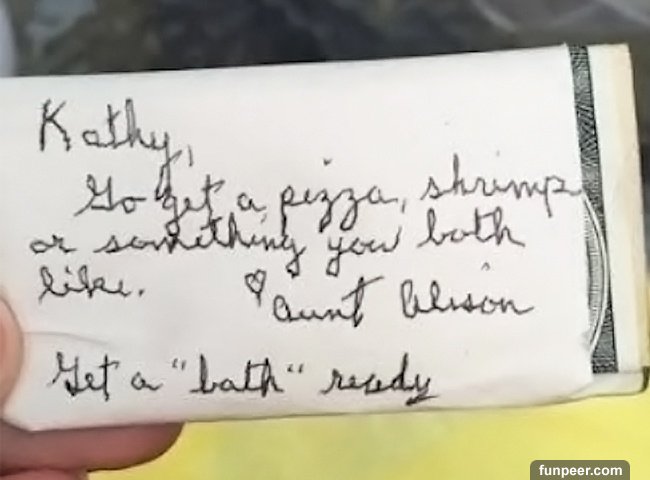 Kathy,
Go get a pizza, shrimp
or something you both
like. ♡ Aunt Alison
Get a "bath" ready
funpeer.com